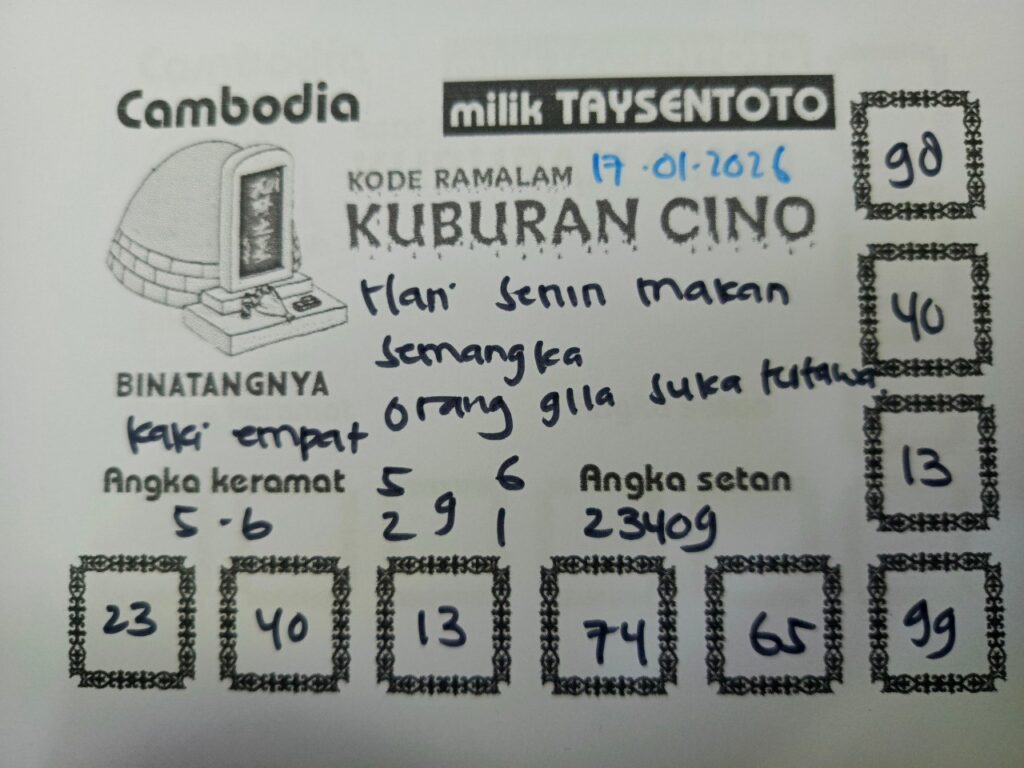 Cambodia
milik TAYSENTOTO
KODE RAMALAM 17.01.2026
KUBURAN CINO
Hari senin makan
semangka
orang gila suka tertawa.
BINATANGNYA
kaki empat
Angka keramat
5.6
5 6
9
2 1
Angka setan
23409
98
40
13
23
40
13
74
65
99